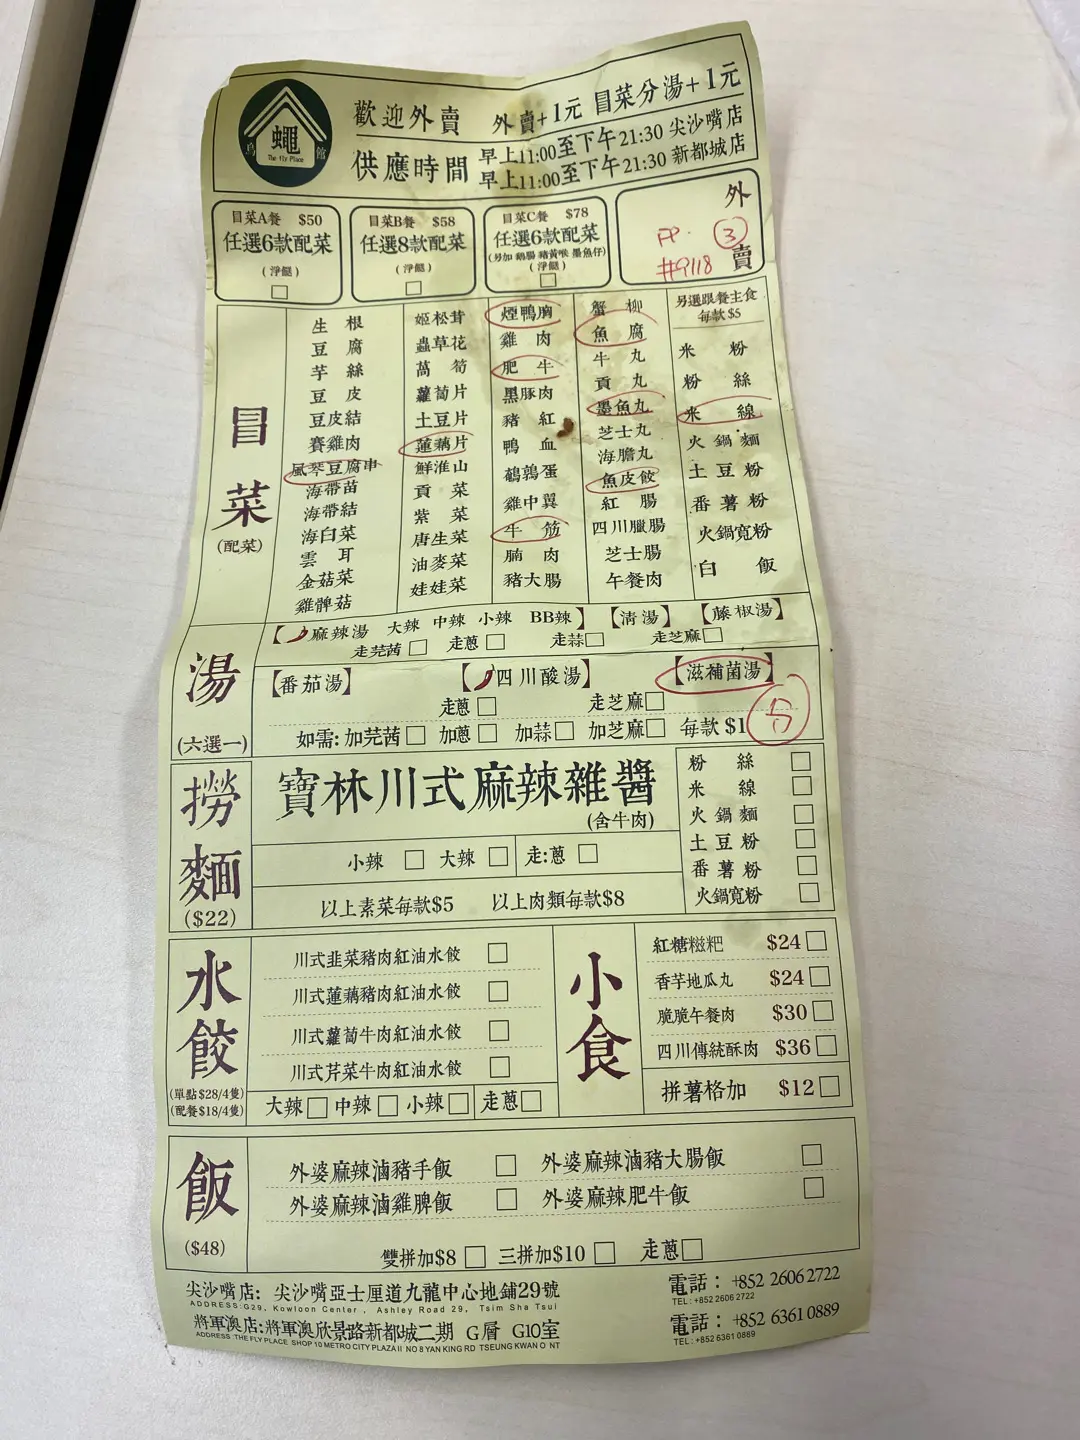 蠅
鳥 館
The Fly Place
歡迎外賣 外賣+1元 冒菜分湯+1元
供應時間 早上11:00至下午21:30 尖沙嘴店
早上11:00至下午21:30 新都城店
冒菜A餐 $50
任選6款配菜
(淨餸)
冒菜B餐 $58
任選8款配菜
(淨餸)
冒菜C餐 $78
任選6款配菜
(另加 鵝腸 豬黃喉 墨魚仔)
(淨餸)
外賣
FP. ③
#9118
冒菜
(配菜)
生根
豆腐
芋絲
豆皮
豆皮結
賽雞肉
風琴豆腐串
海帶苗
海帶結
海白菜
雲耳
金菇菜
雞髀菇
姬松茸
蟲草花
萵筍
蘿蔔片
土豆片
蓮藕片
鮮淮山
貢菜
紫菜
唐生菜
油麥菜
娃娃菜
煙鴨胸
雞肉
肥牛
黑豚肉
豬紅
鴨血
鵪鶉蛋
雞中翼
牛筋
腩肉
豬大腸
蟹柳
魚腐
牛丸
貢丸
墨魚丸
芝士丸
海膽丸
魚皮餃
紅腸
四川臘腸
芝士腸
午餐肉
另選跟餐主食
每款$5
米粉
粉絲
米線
火鍋麵
土豆粉
番薯粉
火鍋寬粉
白飯
湯
(六選一)
【麻辣湯 大辣 中辣 小辣 BB辣】 【清湯】 【藤椒湯】
走芫茜 走蔥 走蒜 走芝麻
【番茄湯】 【四川酸湯】 【滋補菌湯】
走蔥 走芝麻
如需: 加芫茜 加蔥 加蒜 加芝麻 每款 $1
分
撈麵
($22)
寶林川式麻辣雜醬
(含牛肉)
小辣 大辣 走:蔥
以上素菜每款$5 以上肉類每款$8
粉絲
米線
火鍋麵
土豆粉
番薯粉
火鍋寬粉
水餃
(單點 $28/4隻)
(配餐$18/4隻)
川式韭菜豬肉紅油水餃
川式蓮藕豬肉紅油水餃
川式蘿蔔牛肉紅油水餃
川式芹菜牛肉紅油水餃
大辣 中辣 小辣 走蔥
小食
紅糖糍粑 $24
香芋地瓜丸 $24
脆脆午餐肉 $30
四川傳統酥肉 $36
拼薯格加 $12
飯
($48)
外婆麻辣滷豬手飯 外婆麻辣滷豬大腸飯
外婆麻辣滷雞脾飯 外婆麻辣肥牛飯
雙拼加$8 三拼加$10 走蔥
尖沙嘴店: 尖沙嘴亞士厘道九龍中心地鋪29號 電話: +852 2606 2722
ADDRESS:G29, Kowloon Center, Ashley Road 29, Tsim Sha Tsui TEL: +852 2606 2722
將軍澳店:將軍澳欣景路新都城二期 G層 G10室 電話: +852 6361 0889
ADDRESS :THE FLY PLACE SHOP 10 METRO CITY PLAZA II NO 8 YAN KING RD TSEUNG KWAN O NT TEL: +852 6361 0889